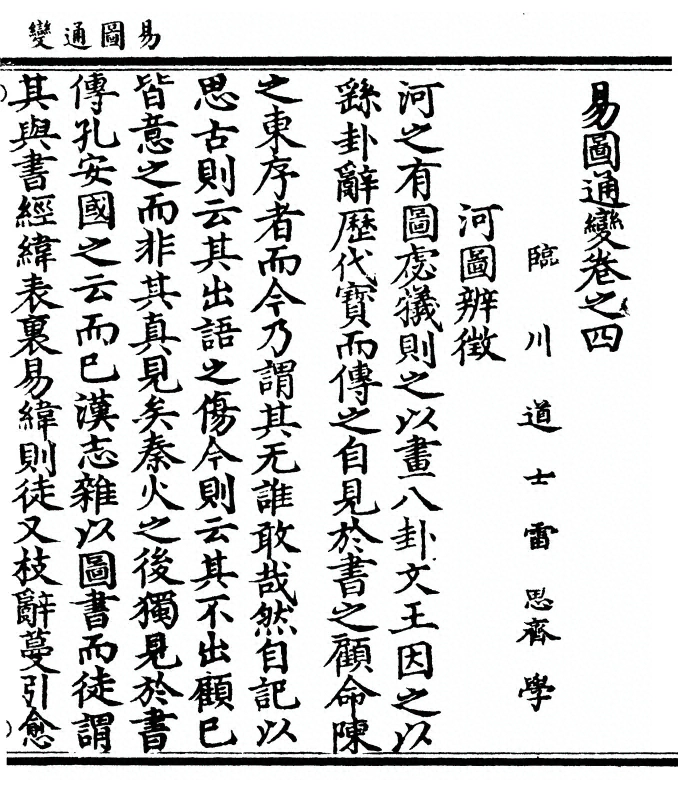 易圖通變
易圖通變卷之四
臨川道士雷思齊學
河圖辨徵
河之有圖虙犧則之以畫八卦文王因之以
繇卦辭歷代寶而傳之自見於書之顧命陳
之東序者而今乃謂其无誰敢哉然自記以
思古則云其出語之傷今則云其不出顧已
皆意之而非其真見矣秦火之後獨見於書
傳孔安國之云而已漢志雜以圖書而徒謂
其與書經緯表裏易緯則徒又枝辭蔓引愈